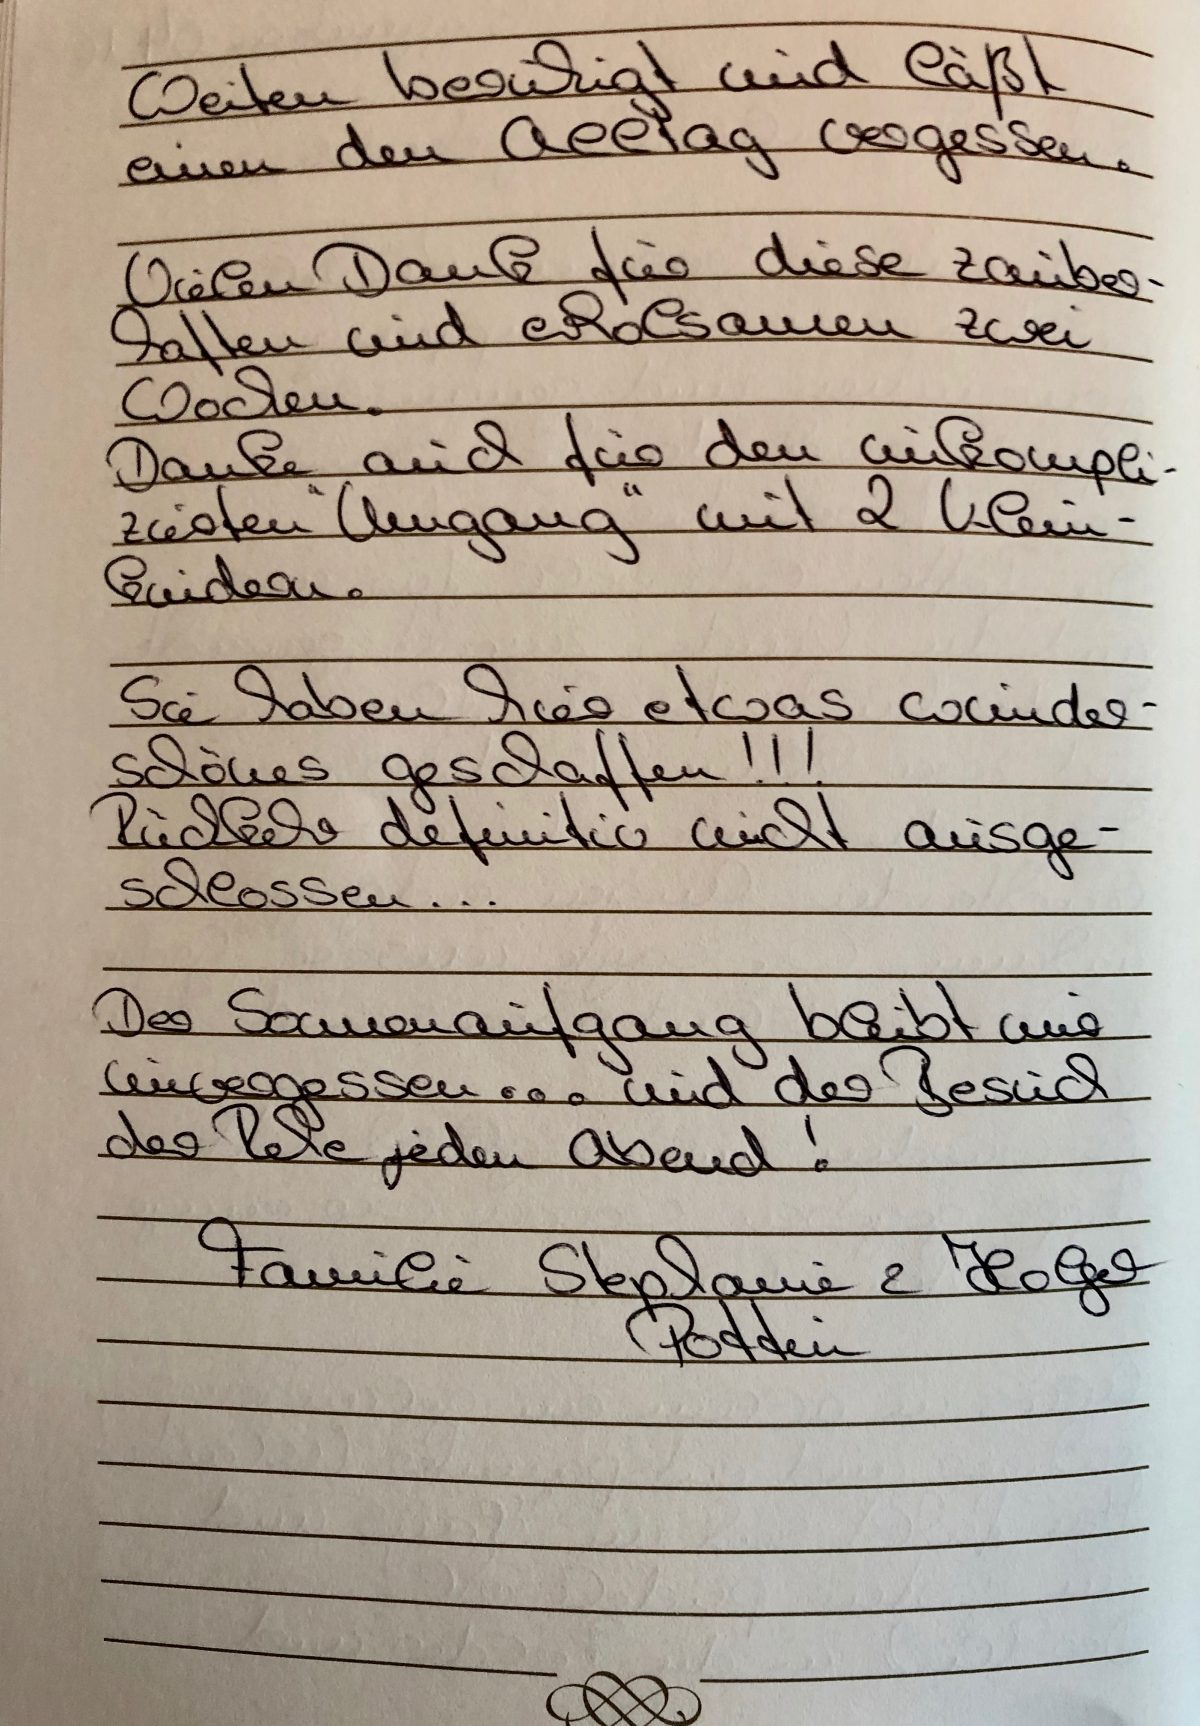 Weiten beruhigt und läßt
einen den Alltag vergessen.
Vielen Dank für diese zauber-
haften und erholsamen zwei
Wochen.
Danke auch für den unkompli-
zierten "Umgang" mit 2 Klein-
kindern.
Sie haben hier etwas wunder-
schönes geschaffen!!!
Rückkehr definitiv nicht ausge-
schlossen...
Der Sonnenaufgang bleibt mir
unvergessen... und der Besuch
der Rehe jeden Abend!
Familie Stephanie & Holger